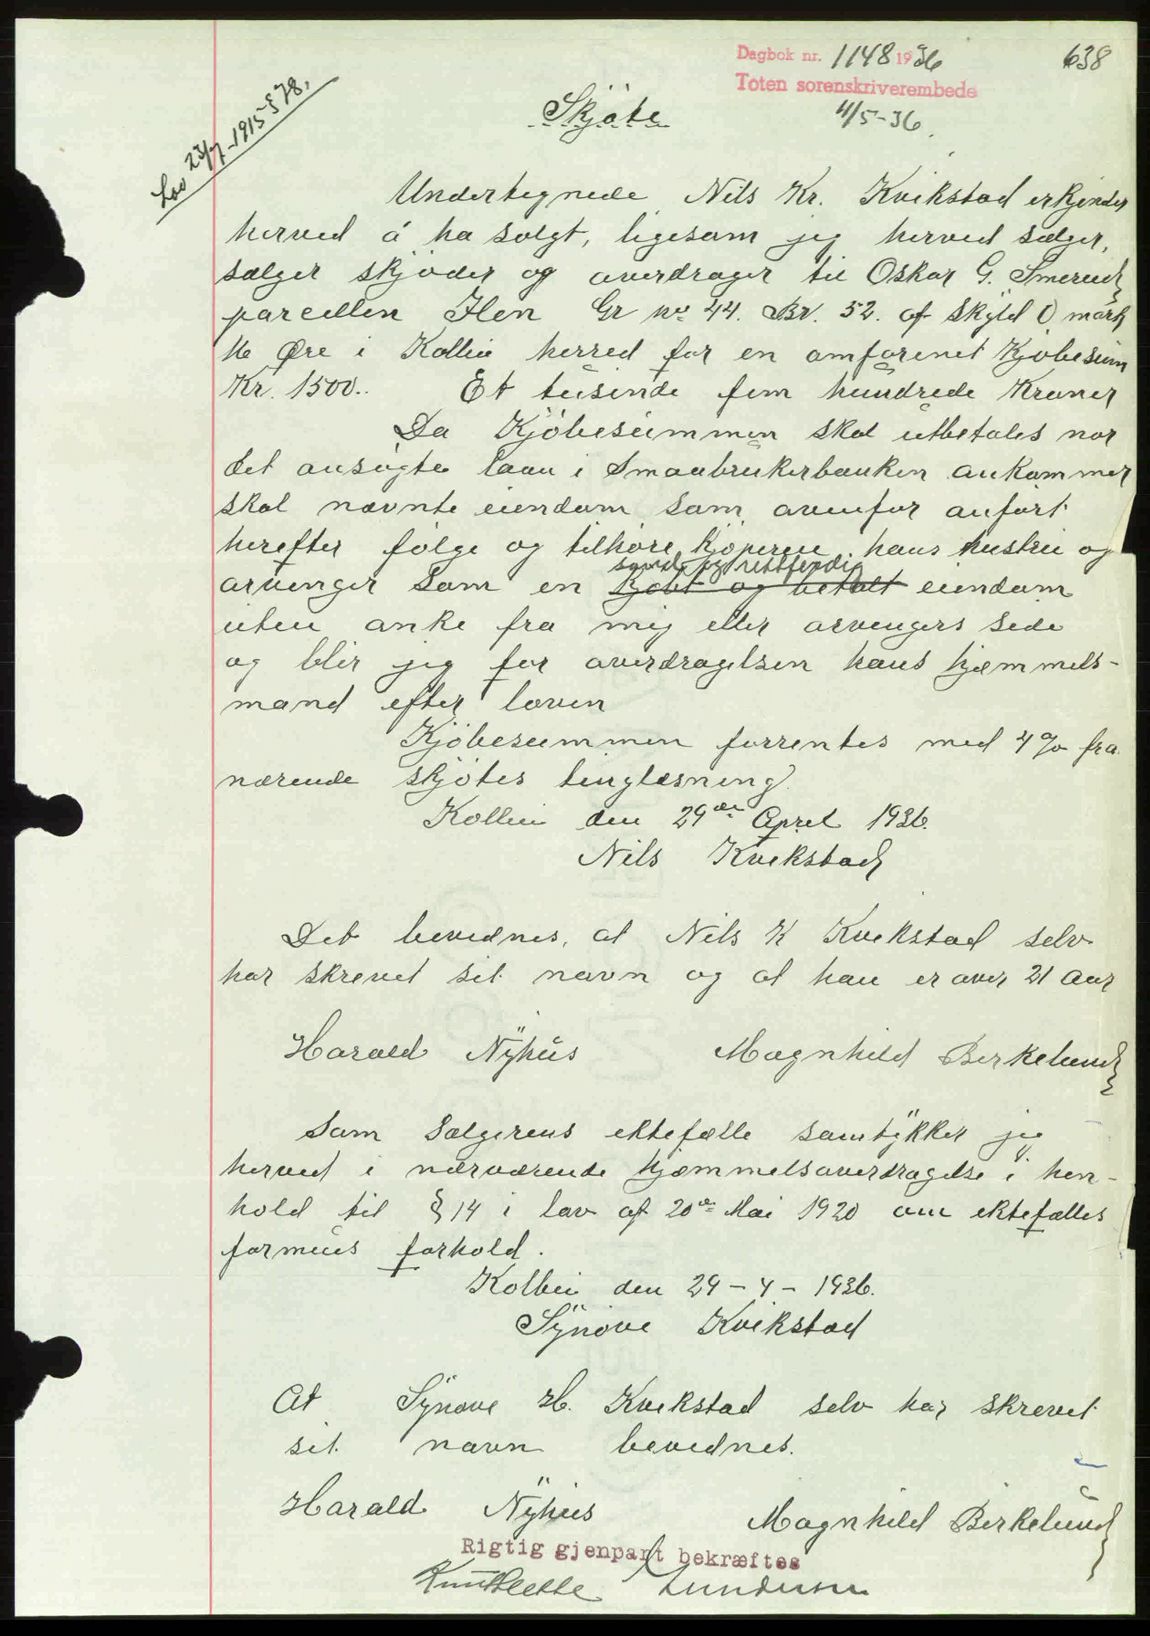 Dagbok nr. 1148 1936
638
Toten sorenskriverembede
4/5-36.
Lov 23/7-1915 § 78.
Skjöte
Undertegnede Nils Kr. Kvikstad erkjender
herved å ha solgt, ligesom jeg herved sælger,
sælger skjöder og overdrager til Oskar G. Smerud
parcellen Hen Gr no 44. Br. 52. af skyld 0 mark
16 Öre i Kolbu herred for en omforenet Kjöbesum
Kr. 1500.. Et tusinde fem hundrede Kroner
Da Kjöbesummen skal utbetales nor
det ansögte laan i Smaabrukerbanken ankommer
skal nævnte eiendom som ovenfor anfört
herefter fölge og tilhöre kjöperen, hans hustru og
sand og rettferdig
arvenger som en kjöbt og betalt eiendom
uten anke fra mig eller arvengers side
og blir jeg for overdragelsen hans hjæmmels-
mand efter loven
Kjöbesummen forrentes med 4% fra
nærende skjötes tinglæsning.
Kolbu den 29de April 1936.
Nils Kvikstad
Det bevidnes, at Nils K Kvikstad selv
har skrevet sit navn og at han er over 21 aar
Harald Nyhus Magnhild Birkelund
Som Sælgerens ektefælle samtykker jeg
herved i nærværende hjæmmelsoverdragelse i hen-
hold til § 14 i lov af 20de Mai 1920 om ektefælles
formues forhold.
Kolbu den 29-4-1936.
Synöve Kvikstad
At Synöve H. Kvikstad selv har skrevet
sit navn bevidnes.
Harald Nyhus Magnhild Birkelund
Rigtig gjenpart bekræftes